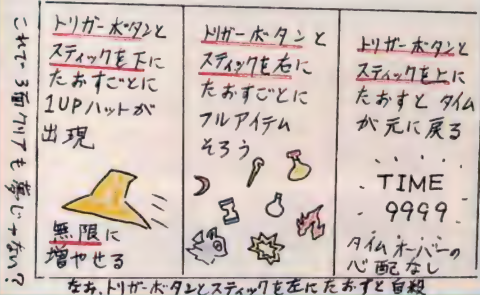 これで3面クリアも夢じゃない?
トリガーボタンと
スティックを下に
たおすごとに
1UPハットが
出現
無限に
増やせる
トリガーボタンと
スティックを右に
たおすごとに
フルアイテム
そろう
トリガーボタンと
スティックを上に
たおすと タイム
が元に戻る
TIME
9999
タイムオーバーの
心配なし
なお、トリガーボタンとスティックを左にたおすと自殺